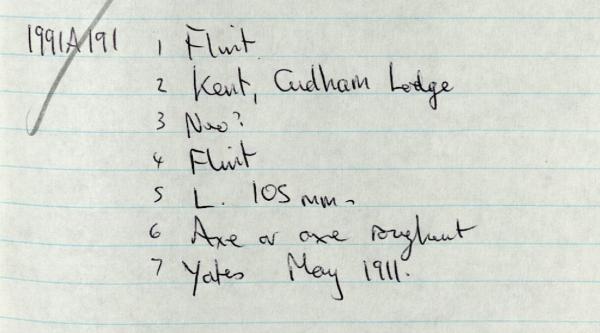 1991A191 1 Flint
2 Kent, Cudham Lodge
3 Neo?
4 Flint
5 L. 105 mm.
6 Axe or axe roughout
7 Yates May 1911.